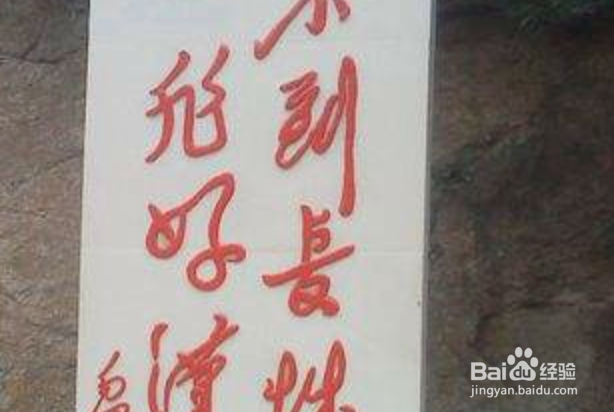 不到長城
非好漢
Baidu经验
jingyan.baidu.com